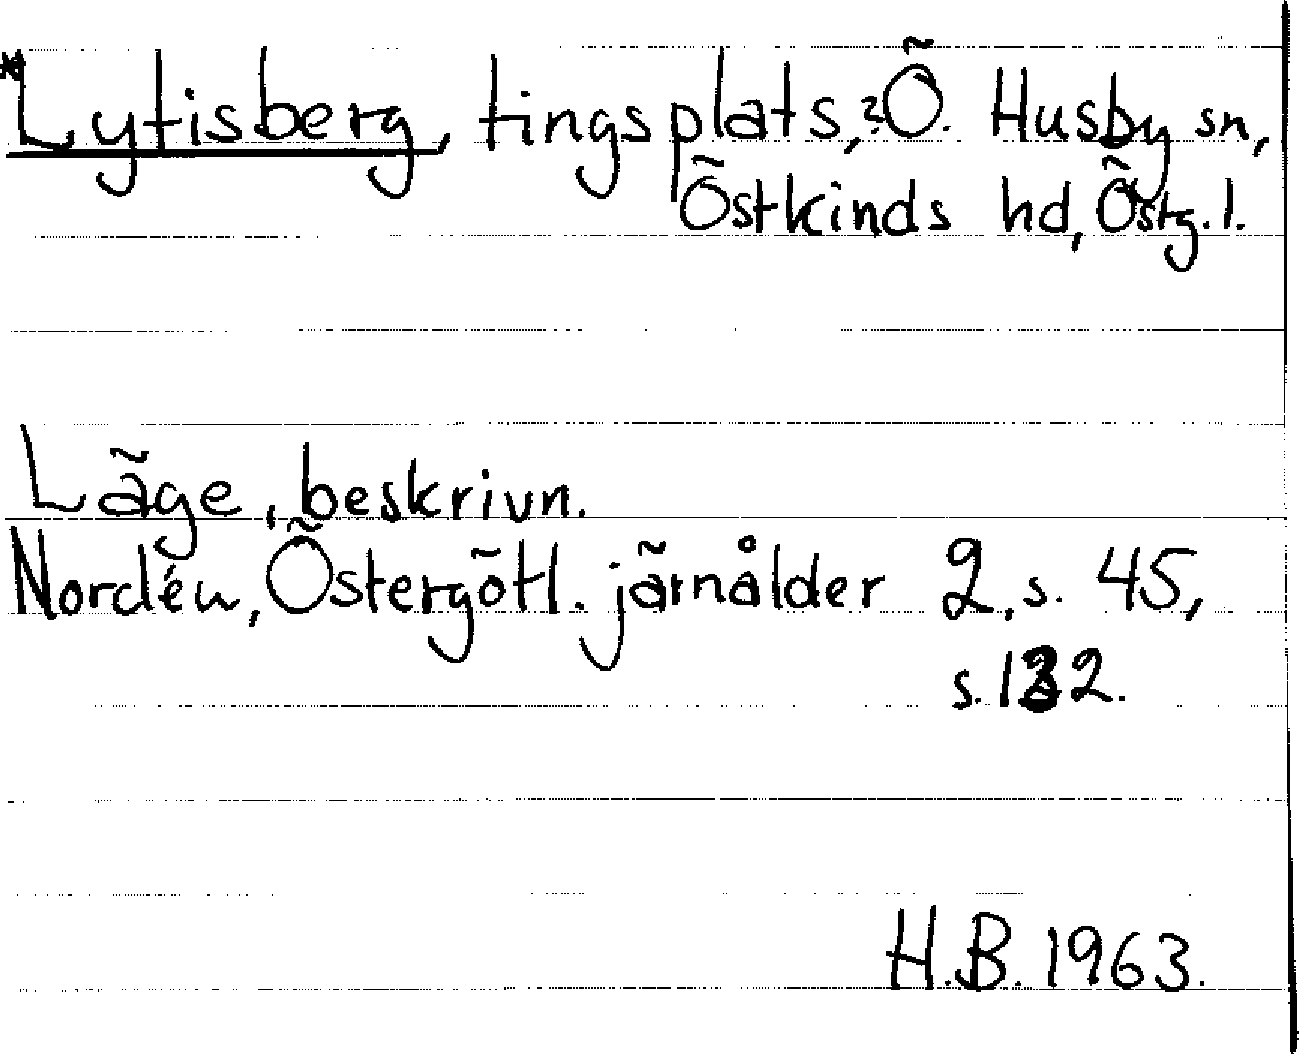 *Lytisberg, tingsplats, ?Ö. Husby sn,
Östkinds hd, Östg. l.
Läge, beskrivn.
Nordén, Östergötl. järnålder 2, s. 45,
s. 132.
H.B. 1963.